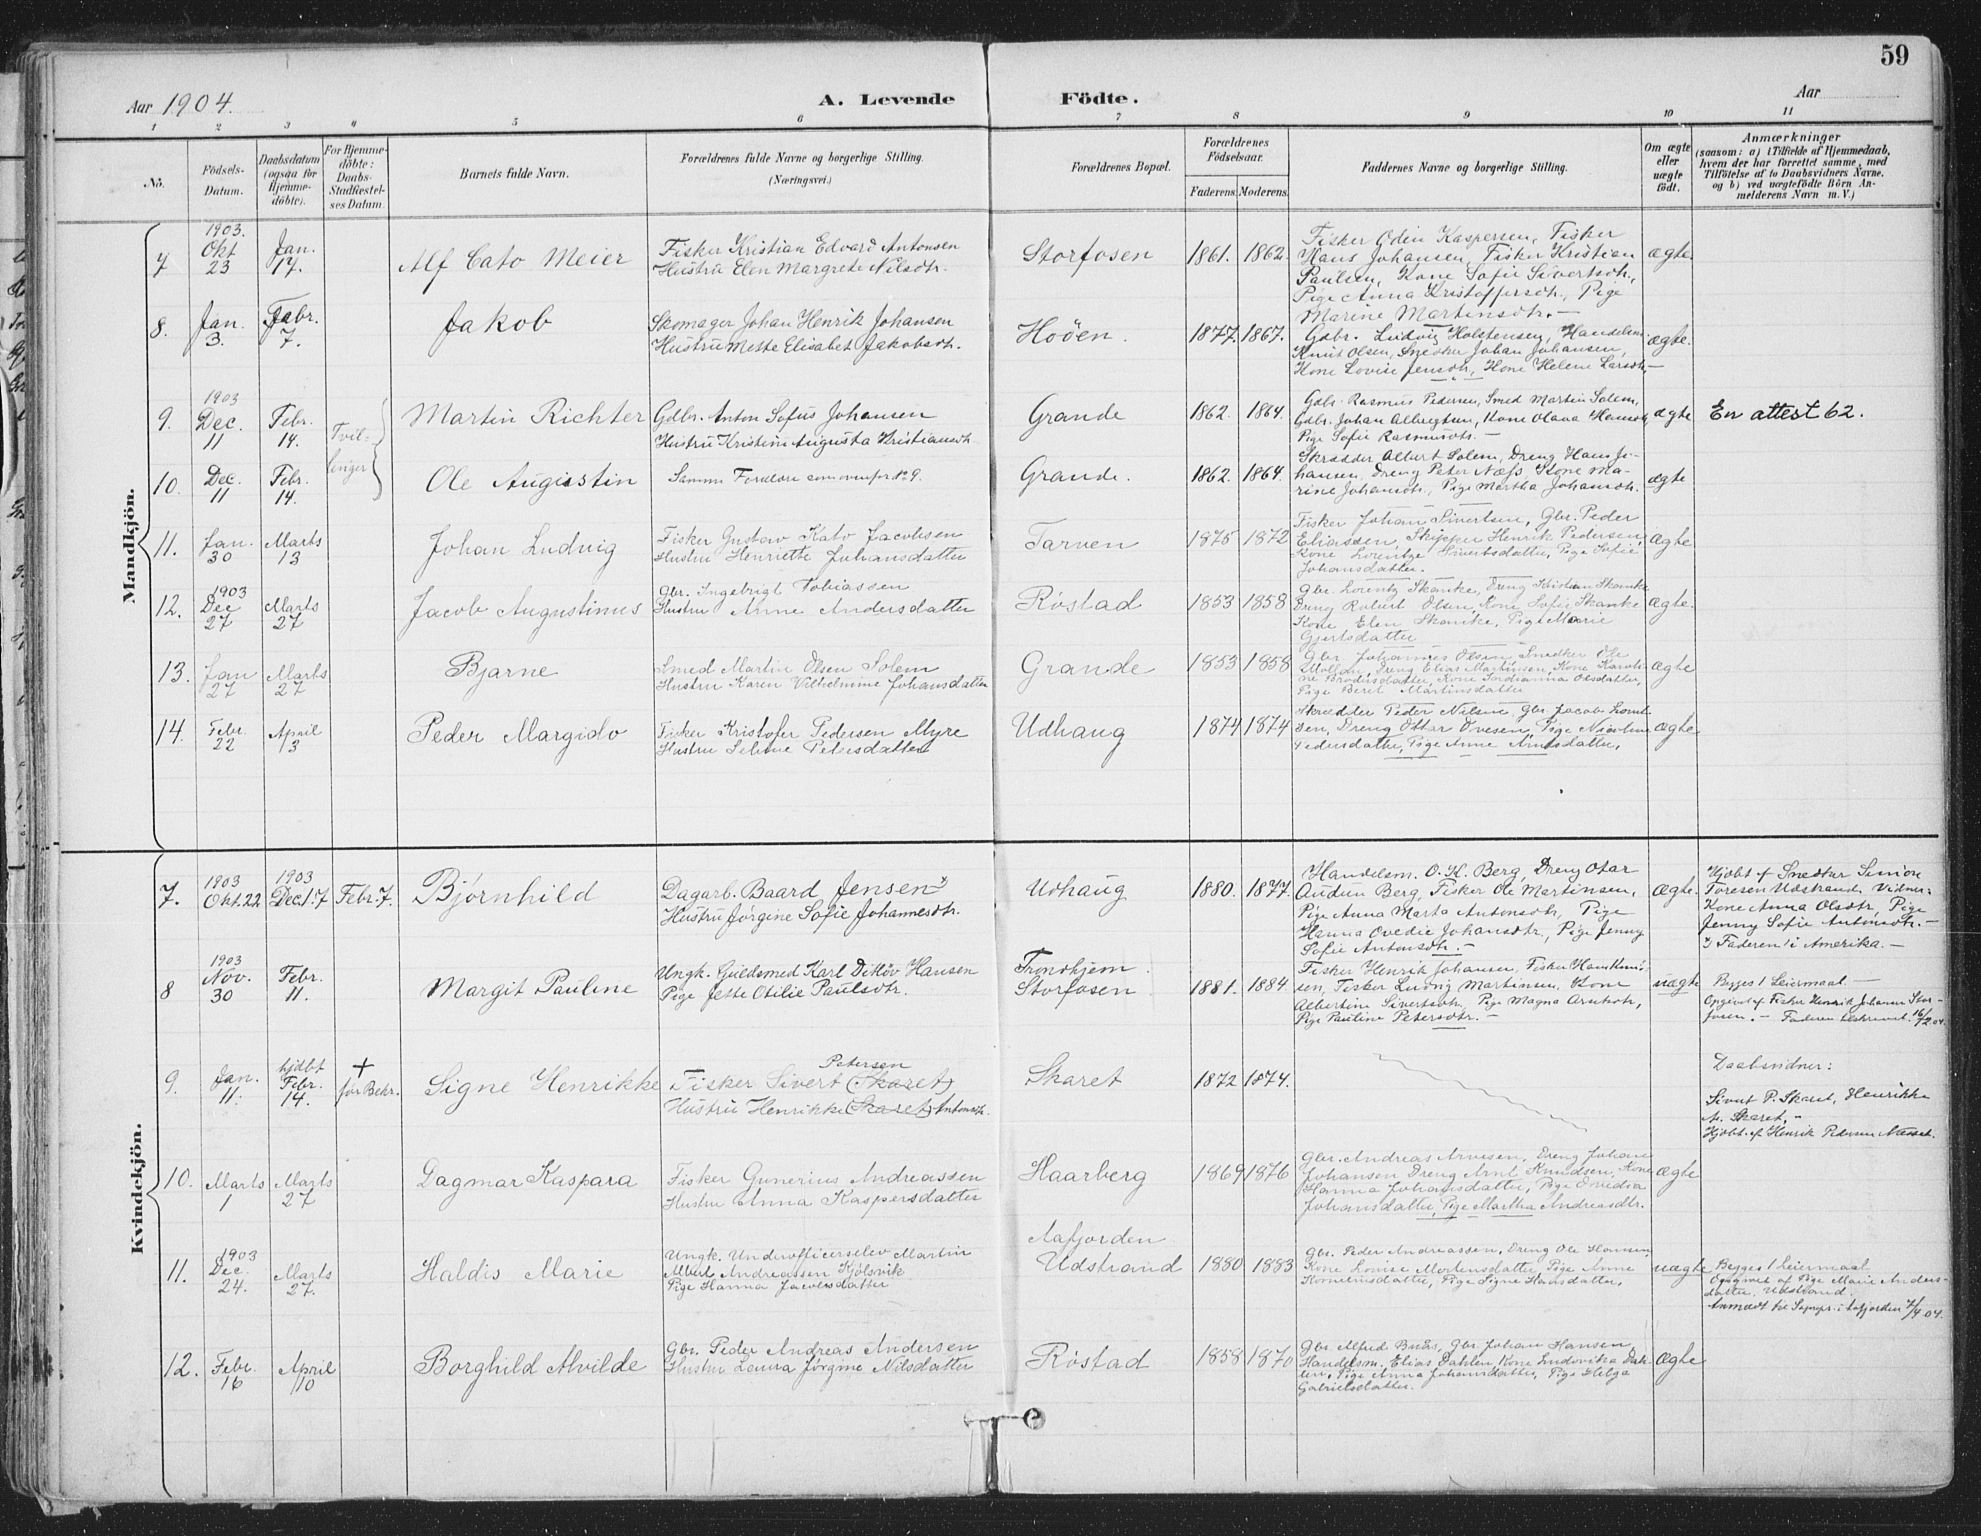 59
Aar 1904.
A. Levende Födte.
Aar
1 2 3 4 5 6 7 8 9 10 11
No.
Födsels-Datum.
Daabsdatum (ogsaa for Hjemmedöbte).
For Hjemmedöbte: Daabs-Stadfæstelses Datum.
Barnets fulde Navn.
Forældrenes fulde Navne og borgerlige Stilling. (Næringsvei.)
Forældrenes Bopæl.
Forældrenes Födselsaar.
Faderens. Moderens.
Faddernes Navne og borgerlige Stilling.
Om ægte eller uægte födt.
Anmærkninger (saasom: a) i Tilfælde af Hjemmedaab, hvem der har forrettet samme, med Tilföielse af to Daabsvidners Navne, og b) ved uægtefödte Börn Anmelderens Navn m. V.)
Mandkjön.
7. 1903. Okt 23 Jan. 17. Alf Cato Meier
Fisker Kristian Edvard Antonsen
Hustru Elen Margrete Nilsdtr.
Storfosen 1861. 1862.
Fisker Odin Kaspersen, Fisker
Hans Johansen, Fisker Kristian
Paulsen, Kone Sofie Sivertsdtr,
Pige Anna Kristoffersdtr, Pige
Marine Martinsdtr. —
ægte.
8. Jan. 3. Febr. 7. Jakob
Skomager Johan Henrik Johansen
Hustru Mette Elisabet Jakobsdtr.
Hoöen. 1877. 1867.
Gdbr. Ludvig Holstensen, Handelsm.
Knut Olsen, Snedker Johan Johansen,
Kone Lovise Jensdtr, Kone Helene Larsdtr, —
ægte.
9. 1903 Dec. 11 Febr. 14. Tvillinger Martin Richter
Gdbr. Anton Sofus Johansen
Hustru Kristine Augusta Kristiansdtr
Grande 1862. 1864.
Gdbr. Rasmus Pedersen, Smed Martin Solem,
Gdbr. Johan Albregtsen, Kone Olava Hansdtr,
Pige Sofie Rasmusdtr. —
ægte
En attest 62.
10. Dec. 11 Febr. 14. Ole Augustin
Samme Forældre som ovenfor No 9.
Grande. 1862. 1864.
Skrædder Albert Solem, Dreng Hans Johansen, Dreng Peter Næss, Kone Marine Johansdtr., Pige Martha Johansdtr.
ægte
11. Jan. 30 Marts 13 Johan Ludvig
Fisker Gustav Kato Jacobsen
Hustru Henriette Johansdatter
Tarven 1875 1872
Fisker Johan Sivertsen, Gbr. Peder
Eliassen, Skipper Henrik Pedersen,
Kone Lorentze Sivertsdatter, Pige Sofie
Johansdatter.
Ægte
12. 1903 Dec 27 Marts 27 Jacob Augustinus
Gbr. Ingebrigt Tobiassen
Hustru Anne Andersdatter
Röstad 1853 1858
Gbr. Lorentz Skanke, Dreng Kristian Skanke
Dreng Robert Olsen, Kone Sofie Skanke
Kone Elen Skanke, Pige Marie
Gjertsdatter
Ægte.
13. Jan 27 Marts 27 Bjarne
Smed Martin Olsen Solem
Hustru Karen Vilhelmine Johansdatter
Grande 1853 1858
Gbr. Johannes Olsen, Snedker Ole
Dreng Elias Martinsen, Kone Karoline Olsdatter,
Pige Beret Martinsdatter
Ægte
14. Febr. 22 April 3 Peder Margido
Fisker Kristofer Pedersen Myre
Hustru Seline Petersdatter
Udhaug 1874 1874
Skrædder Peder Nilsen, Gbr. Jacob
Dreng Ottar Ovesen, Pige Nicoline
Pedersdatter, Pige Anne Arntsdatter.
Ægte
Kvindekjön.
7. 1903 Okt. 22 1903 Dec. 17 Febr. 7. Björnhild
Dagarb. Baard Jensen
Hustru Jørgine Sofie Johannesdtr.
Udhaug 1880. 1877.
Handelsm. O. H. Berg, Dreng Otar
Audun Berg, Fisker Ole Martinsen,
Pige Anna Marta Antonsdtr, Pige
Hanna Ovedie Johansdtr., Pige Jenny
Sofie Antonsdtr. —
Ægte.
Hjdbt af Snedker Simon
Toresen Udstrand, Vidner:
Kone Anna Olsdtr, Pige
Jenny Sofie Antonsdtr. —
Faderen i Amerika. —
8 1903 Nov. 30 Febr. 11. Margit Pauline
Ungk. Guldsmed Karl Ditlöv Hansen
Pige Jette Otilie Paulsdtr.
Trondhjem.
Storfosen 1881. 1884.
Fisker Henrik Johansen, Fisker
Fisker Ludvig Martinsen, Kone
Albertine Sivertsdtr, Pige Magna Arntsdtr,
Pige Pauline Petersdtr. —
uægte
Begges 1 Leiermaal —
Opgivet af Fisker Henrik Johansen Storfosen. — Faderen 16/2 04.
9. Jan. 11. hjdbt Febr. 14. + før Bekr. Signe Henrikke
Petersen
Fisker Sivert (Skaret)
Hustru Henrikke (Skaret) Antonsdtr.
Skaret 1872 1874.
Daabsvidner:
Sivert P. Skaret, Henrikke
A. Skaret, —
Hjdbt af Henrik Pedersen
10. Marts 1 Marts 27 Dagmar Kaspara
Fisker Gunerius Andreassen
Hustru Anna Kaspersdatter
Haarberg 1869 1876
Gbr. Andreas Arnesen, Dreng Johan
Johansen Dreng Arnt Knudsen, Kone
Hanna Johansdatter, Pige Ovedia
Johansdatter, Pige Martha Andreasdtr.
Ægte
11. 1903 Dec. 24. Marts 27. Haldis Marie
Ungk. Underofficerselev Martin
Albert Andreassen Kjölsvik
Pige Hanna Jacobsdatter
Aafjorden
Udstrand 1880 1883
Gbr. Peder Andreassen, Dreng Ole Hansen
Kone Lovise Mortensdatter, Pige Anne
Korneliusdatter, Pige Signe Hansdatter,
uægte
Begges 1 Leiermaal
Opgivet af Pige Marie Andersdatter, Udstrand.
Anmeldt til Sognepr. i Aafjorden 7/4 04.
12. Febr. 16 April 10 Borghild Alvilde
Gbr. Peder Andreas Andersen
Hustru Laura Jørgine Nilsdatter
Röstad 1858 1870
Gbr. Alfred Buås, Gbr. Johan Hansen
Handelsm. Elias Dahlen Kone Ludovika Dahlen, Pige Anna Johansdatter, Pige Helga
Gabrielsdatter.
Ægte